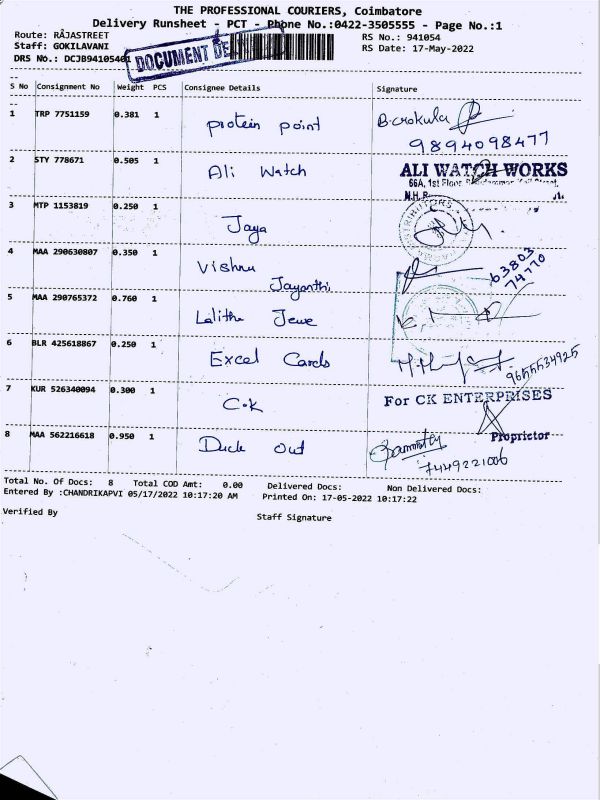 THE PROFESSIONAL COURIERS, Coimbatore
Delivery Runsheet - PCT - Phone No.:0422-3505555 - Page No.:1
Route: RAJASTREET
RS No.: 941054
Staff: GOKILAVANI
RS Date: 17-May-2022
DRS No.: DCJB94105401
DOCUMENT DE
S No Consignment No Weight PCS Consignee Details Signature
1 TRP 7751159 0.381 1 protein point B.Gokula
9894098477
2 STY 778671 0.505 1 Ali Watch ALI WATCH WORKS
66A, 1st Floor
3 MTP 1153819 0.250 1 Jaya
4 MAA 290630807 0.350 1 Vishnu 63803
Jayanthi 74770
5 MAA 290765372 0.760 1 Lalitha Jewe
6 BLR 425618867 0.250 1 Excel Cards 9655534925
7 KUR 526340094 0.300 1 C.K For CK ENTERPRISES
Proprietor
8 MAA 562216618 0.950 1 Duck out
7449221006
Total No. Of Docs: 8 Total COD Amt: 0.00 Delivered Docs: Non Delivered Docs:
Entered By :CHANDRIKAPVI 05/17/2022 10:17:20 AM Printed On: 17-05-2022 10:17:22
Verified By
Staff Signature